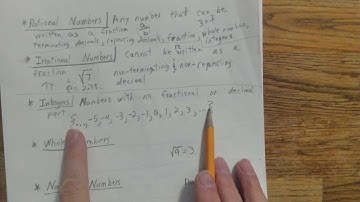 * Rational Numbers | Any number that can be
written as a fraction a/b 3=3/1
terminating decimals, repeating decimals, fractions, whole numbers,
integers
* Irrational Numbers | Cannot be written as a
fraction √7 non-terminating & non-repeating
π decimal
* Integers | Numbers with no fractional or decimal
part
{..., -5, -4, -3, -2, -1, 0, 1, 2, 3, ...}
* Whole
√9 = 3
* N Numbers